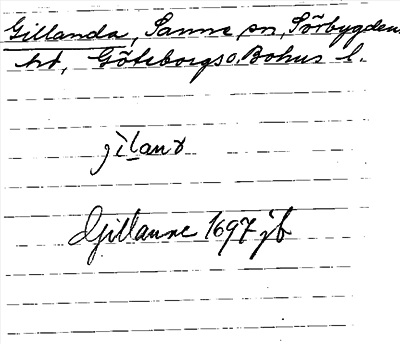 Gillanda, Sanne sn, Sörbygdens
hd, Göteborgs o. Bohus l.
jìlanɤ
Gjillanne 1697 jb